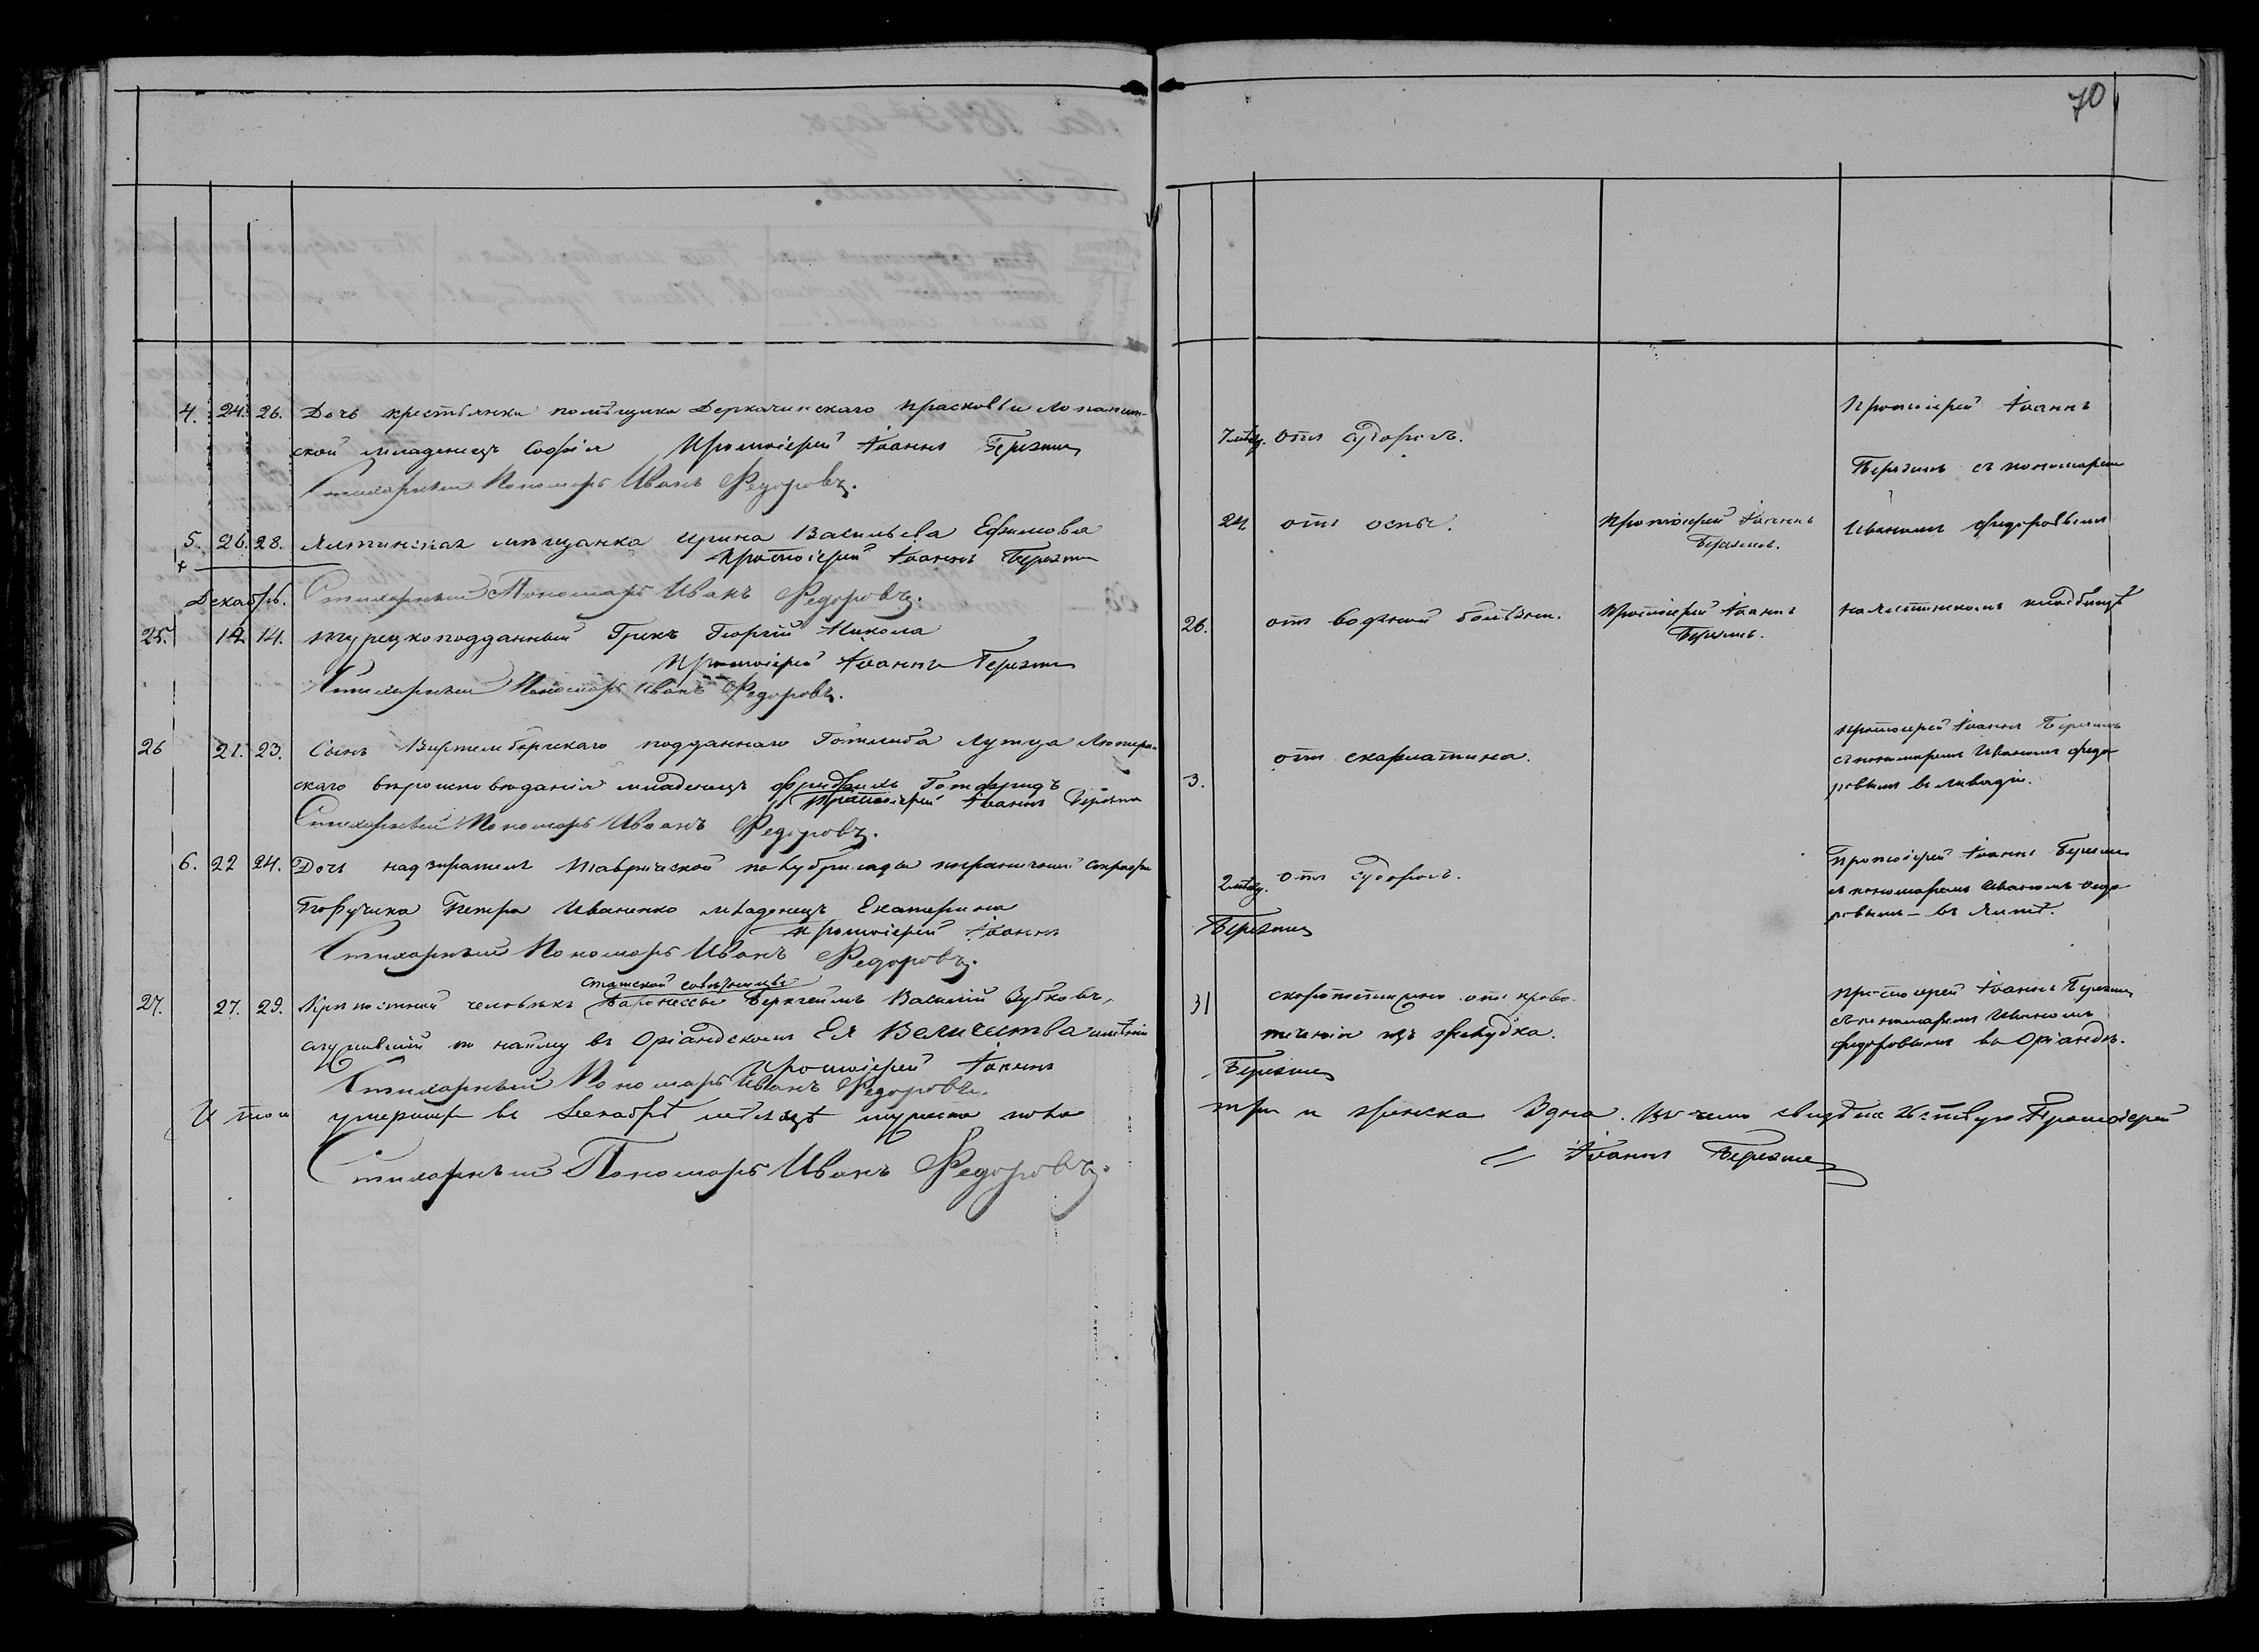 70
4. 24. 26. Дочь крестьянки помѣщика Деркачинскаго Прасковьи Лопатин-
ской младенецъ Софія Протоіерей Іоаннъ Березинъ
Стихарный Пономарь Иванъ Федоровъ.
7 мѣсяц. отъ судорогъ.
Протоіерей Іоаннъ
Березинъ съ пономаремъ
5. 26. 28. Ялтинская мѣщанка Ирина Васильева Ефимова
Протоіерей Іоаннъ Березинъ
Стихарный Пономарь Иванъ Федоровъ.
24 отъ оспы. Протоіерей Іоаннъ
Березинъ.
Иваномъ Федоровымъ
Декабрь.
25. 12 14. Турецкоподданный Грекъ Георгій Никола
Протоіерей Іоаннъ Березинъ
Стихарный Пономарь Иванъ Федоровъ.
26. отъ водяной болѣзни. Протоіерей Іоаннъ
Березинъ.
на Ялтинскомъ кладбищѣ
26 21. 23. Сынъ Виртембергскаго подданнаго Готлиба Лутца Лютеран-
скаго вѣроисповѣданія младенецъ Фридрихъ Готфридъ
Протоіерей Іоаннъ Березинъ
Стихарный Пономарь Иванъ Федоровъ.
3. отъ скарлатина.
Протоіерей Іоаннъ Березинъ
съ пономаремъ Иваномъ Федо-
ровымъ въ Ливадіи.
6. 22 24. Дочь надзирателя Таврической по губерніи пограничной стражи
Поручика Петра Иваненко младенецъ Екатерина
Протоіерей Іоаннъ
Березинъ
Стихарный Пономарь Иванъ Федоровъ.
2 мѣсяц. отъ судорогъ.
Протоіерей Іоаннъ Березинъ
съ пономаремъ Иваномъ Федо-
ровымъ – въ Ялтѣ.
статской совѣтницы
27. 27. 29. Крѣпостной человѣкъ Баронессы Берхгеймъ Василій Зубковъ,
служившій по найму въ Оріандскомъ Ея Величества имѣніи
Протоіерей Іоаннъ
Березинъ
Стихарный Пономарь Иванъ Федоровъ.
31 скоропостижно отъ крово-
теченія изъ желудка.
Протоіерей Іоаннъ Березинъ
съ пономаремъ Иваномъ
Федоровымъ въ Оріандѣ.
Итого умершихъ въ Декабрѣ мѣсяцѣ мужеска пола
три и женска одна. Въ чемъ свидѣтельствую Протоіерей
Іоаннъ Березинъ
Стихарный Пономарь Иванъ Федоровъ.